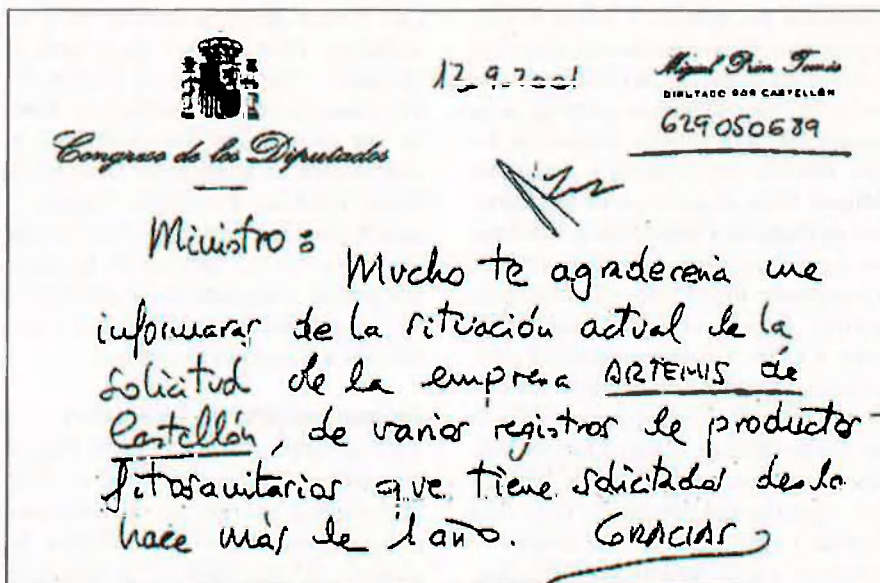 12-9-2001
Miguel Prim Tomás
DIPUTADO POR CASTELLÓN
629050689
Congreso de los Diputados
Ministro:
Mucho te agradecería me
informaras de la situación actual de la
solicitud de la empresa ARTEMIS de
Castellón, de varios registros de productos
fitosanitarios que tiene solicitados desde
hace más de 1 año. GRACIAS